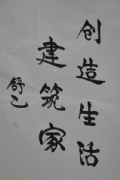 创造生活
建筑家
舒乙